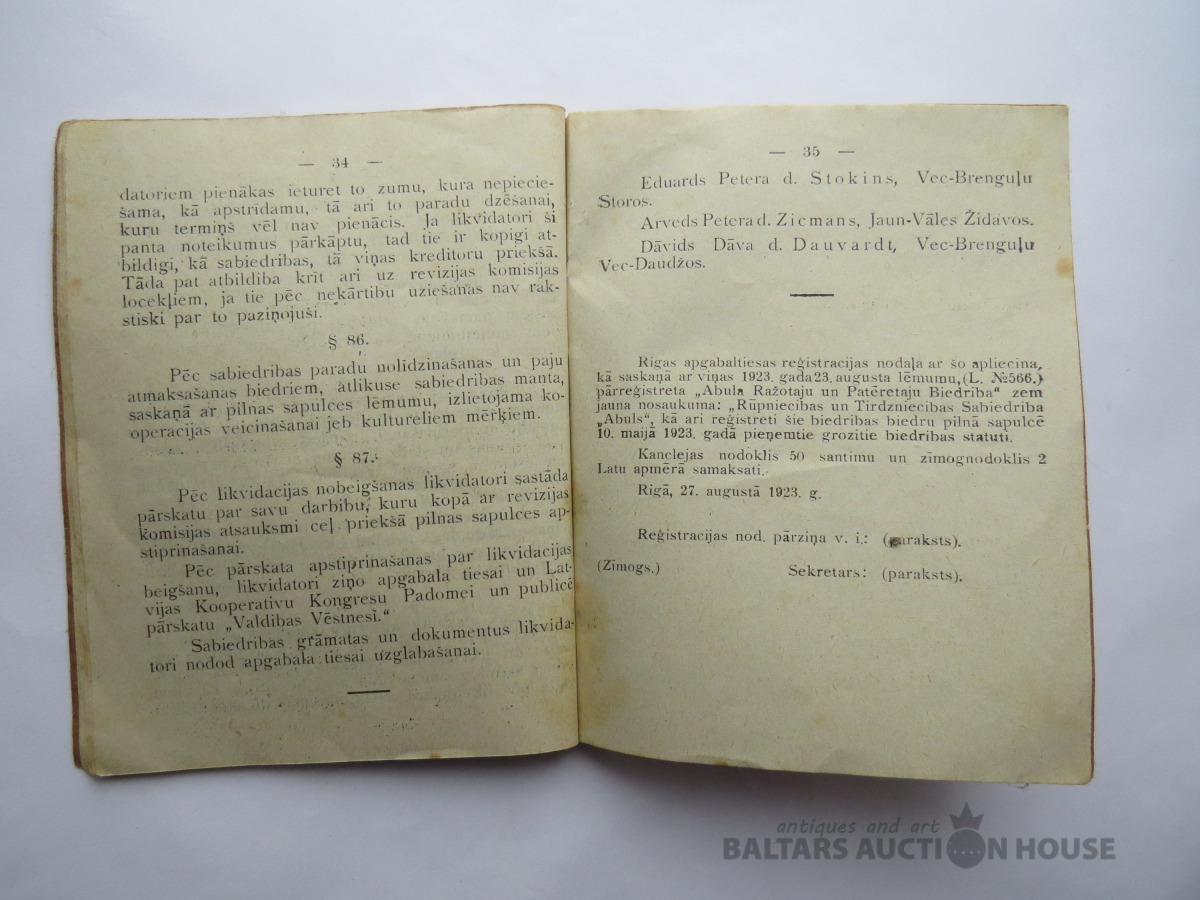 — 34 —
datoriem pienākas ieturet to zumu, kura nepiecie-
šama, kā apstrīdamu, tā ari to paradu dzēšanai,
kuru termiņš vēl nav pienācis. Ja likvidatori ši
panta noteikumus pārkāptu, tad tie ir kopigi at-
bildigi, kā sabiedrības, tā viņas kreditoru priekšā.
Tāda pat atbildiba krīt ari uz revizijas komisijas
locekļiem, ja tie pēc nekārtibu uziešanas nav rak-
stiski par to paziņojuši.
§ 86.
Pēc sabiedribas paradu nolīdzinašanas un paju
atmaksašanas biedriem, atlikuse sabiedribas manta,
saskaņā ar pilnas sapulces lēmumu, izlietojama ko-
operacijas veicinašanai jeb kultureliem mērķiem.
§ 87.
Pēc likvidacijas nobeigšanas likvidatori sastāda
pārskatu par savu darbibu, kuru kopā ar revizijas
komisijas atsauksmi ceļ priekšā pilnas sapulces ap-
stiprinašanai.
Pēc pārskata apstiprinašanas par likvidacijas
beigšanu, likvidatori ziņo apgabala tiesai un Lat-
vijas Kooperativu Kongresu Padomei un publicē
pārskatu „Valdibas Vēstnesi.“
Sabiedribas grāmatas un dokumentus likvida-
tori nodod apgabala tiesai uzglabašanai.
— 35 —
Eduards Petera d. Stokins, Vec-Brenguļu
Storos.
Arveds Petera d. Zicmans, Jaun-Vāles Žīdavos.
Dāvids Dāva d. Dauvardt, Vec-Brenguļu
Vec-Daudžos.
Rigas apgabaltiesas reģistracijas nodaļa ar šo apliecina,
kā saskaņā ar viņas 1923. gada 23. augusta lēmumu, (L. №566.)
pārreģistreta „Abula Ražotaju un Patēretaju Biedriba“ zem
jauna nosaukuma: „Rūpniecibas un Tirdzniecibas Sabiedriba
„Abuls“, kā ari reģistreti šie biedribas biedru pilnā sapulcē
10. maijā 1923. gadā pieņemtie grozitie biedribas statuti.
Kanclejas nodoklis 50 santimu un zīmognodoklis 2
Latu apmērā samaksati.
Rigā, 27. augustā 1923. g.
Reģistracijas nod. pārziņa v. i.: (paraksts).
(Zīmogs.) Sekretars: (paraksts).
antiques and art
BALTARS AUCTION HOUSE